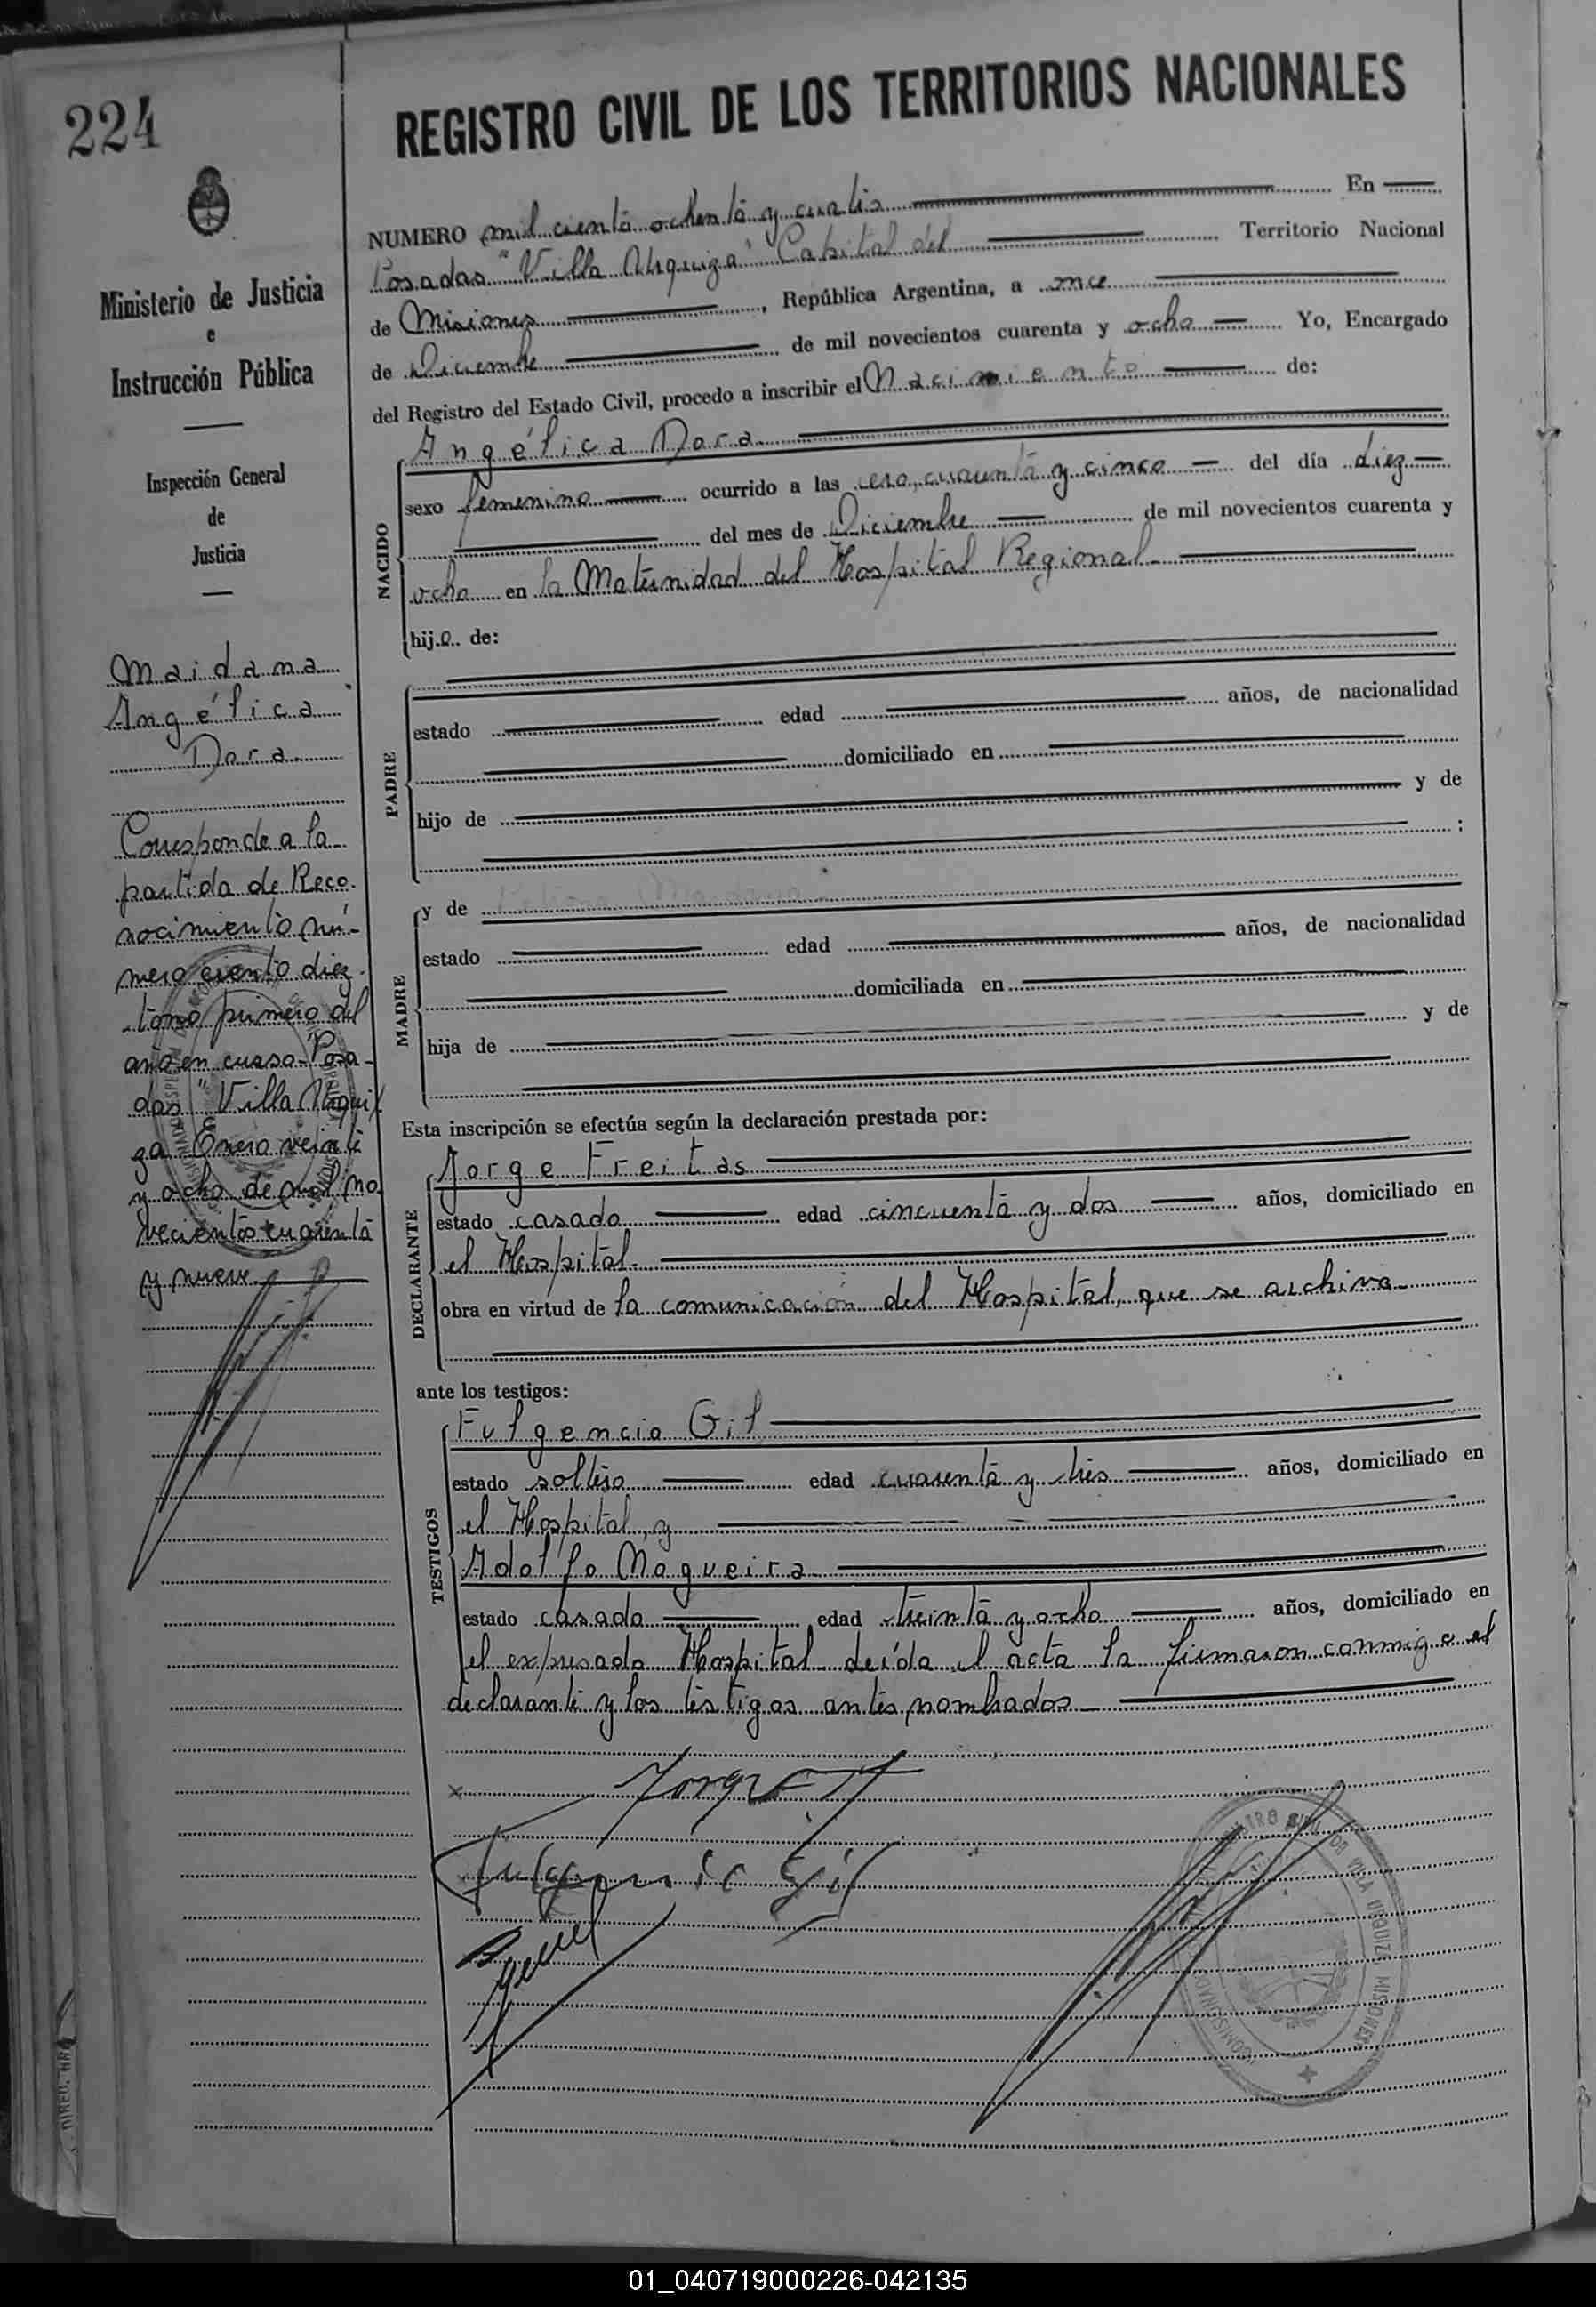 224
REGISTRO CIVIL DE LOS TERRITORIOS NACIONALES
Ministerio de Justicia
e
Instrucción Pública
Inspección General
de
Justicia
NUMERO mil ciento ochenta y cuatro En
Posadas "Villa Urquiza" Capital del Territorio Nacional
de Misiones, República Argentina, a once
de Diciembre de mil novecientos cuarenta y ocho Yo, Encargado
del Registro del Estado Civil, procedo a inscribir el Nacimiento de:
NACIDO
Angélica Dora
sexo femenino ocurrido a las cero, cuarenta y cinco del día diez
del mes de Diciembre de mil novecientos cuarenta y
ocho en la Maternidad del Hospital Regional
hija de:
Maidana
Angélica
Dora
Corresponde a la
partida de Reco-
nocimiento nú-
mero ciento diez
tomo primero del
año en curso-Posa-
das "Villa Urqui
za Enero veinti
y ocho de mil no
vecientos cuarenta
y nueve.
PADRE
estado edad años, de nacionalidad
domiciliado en
hijo de y de
;
MADRE
y de
estado edad años, de nacionalidad
domiciliada en
hija de y de
Esta inscripción se efectúa según la declaración prestada por:
DECLARANTE
Jorge Freitas
estado casado edad cincuenta y dos años, domiciliado en
el Hospital.
obra en virtud de la comunicación del Hospital, que se archiva
ante los testigos:
TESTIGOS
Fulgencio Gil
estado soltero edad cuarenta y tres años, domiciliado en
el Hospital, y
Adolfo Nogueira
estado casado edad treinta y ocho años, domiciliado en
el expresado Hospital leída el acta la firmaron conmigo el
declarante y los testigos antes nombrados
Fulgencio Gil
REGISTRO CIVIL DE VILLA URQUIZA MISIONES
01_040719000226-042135